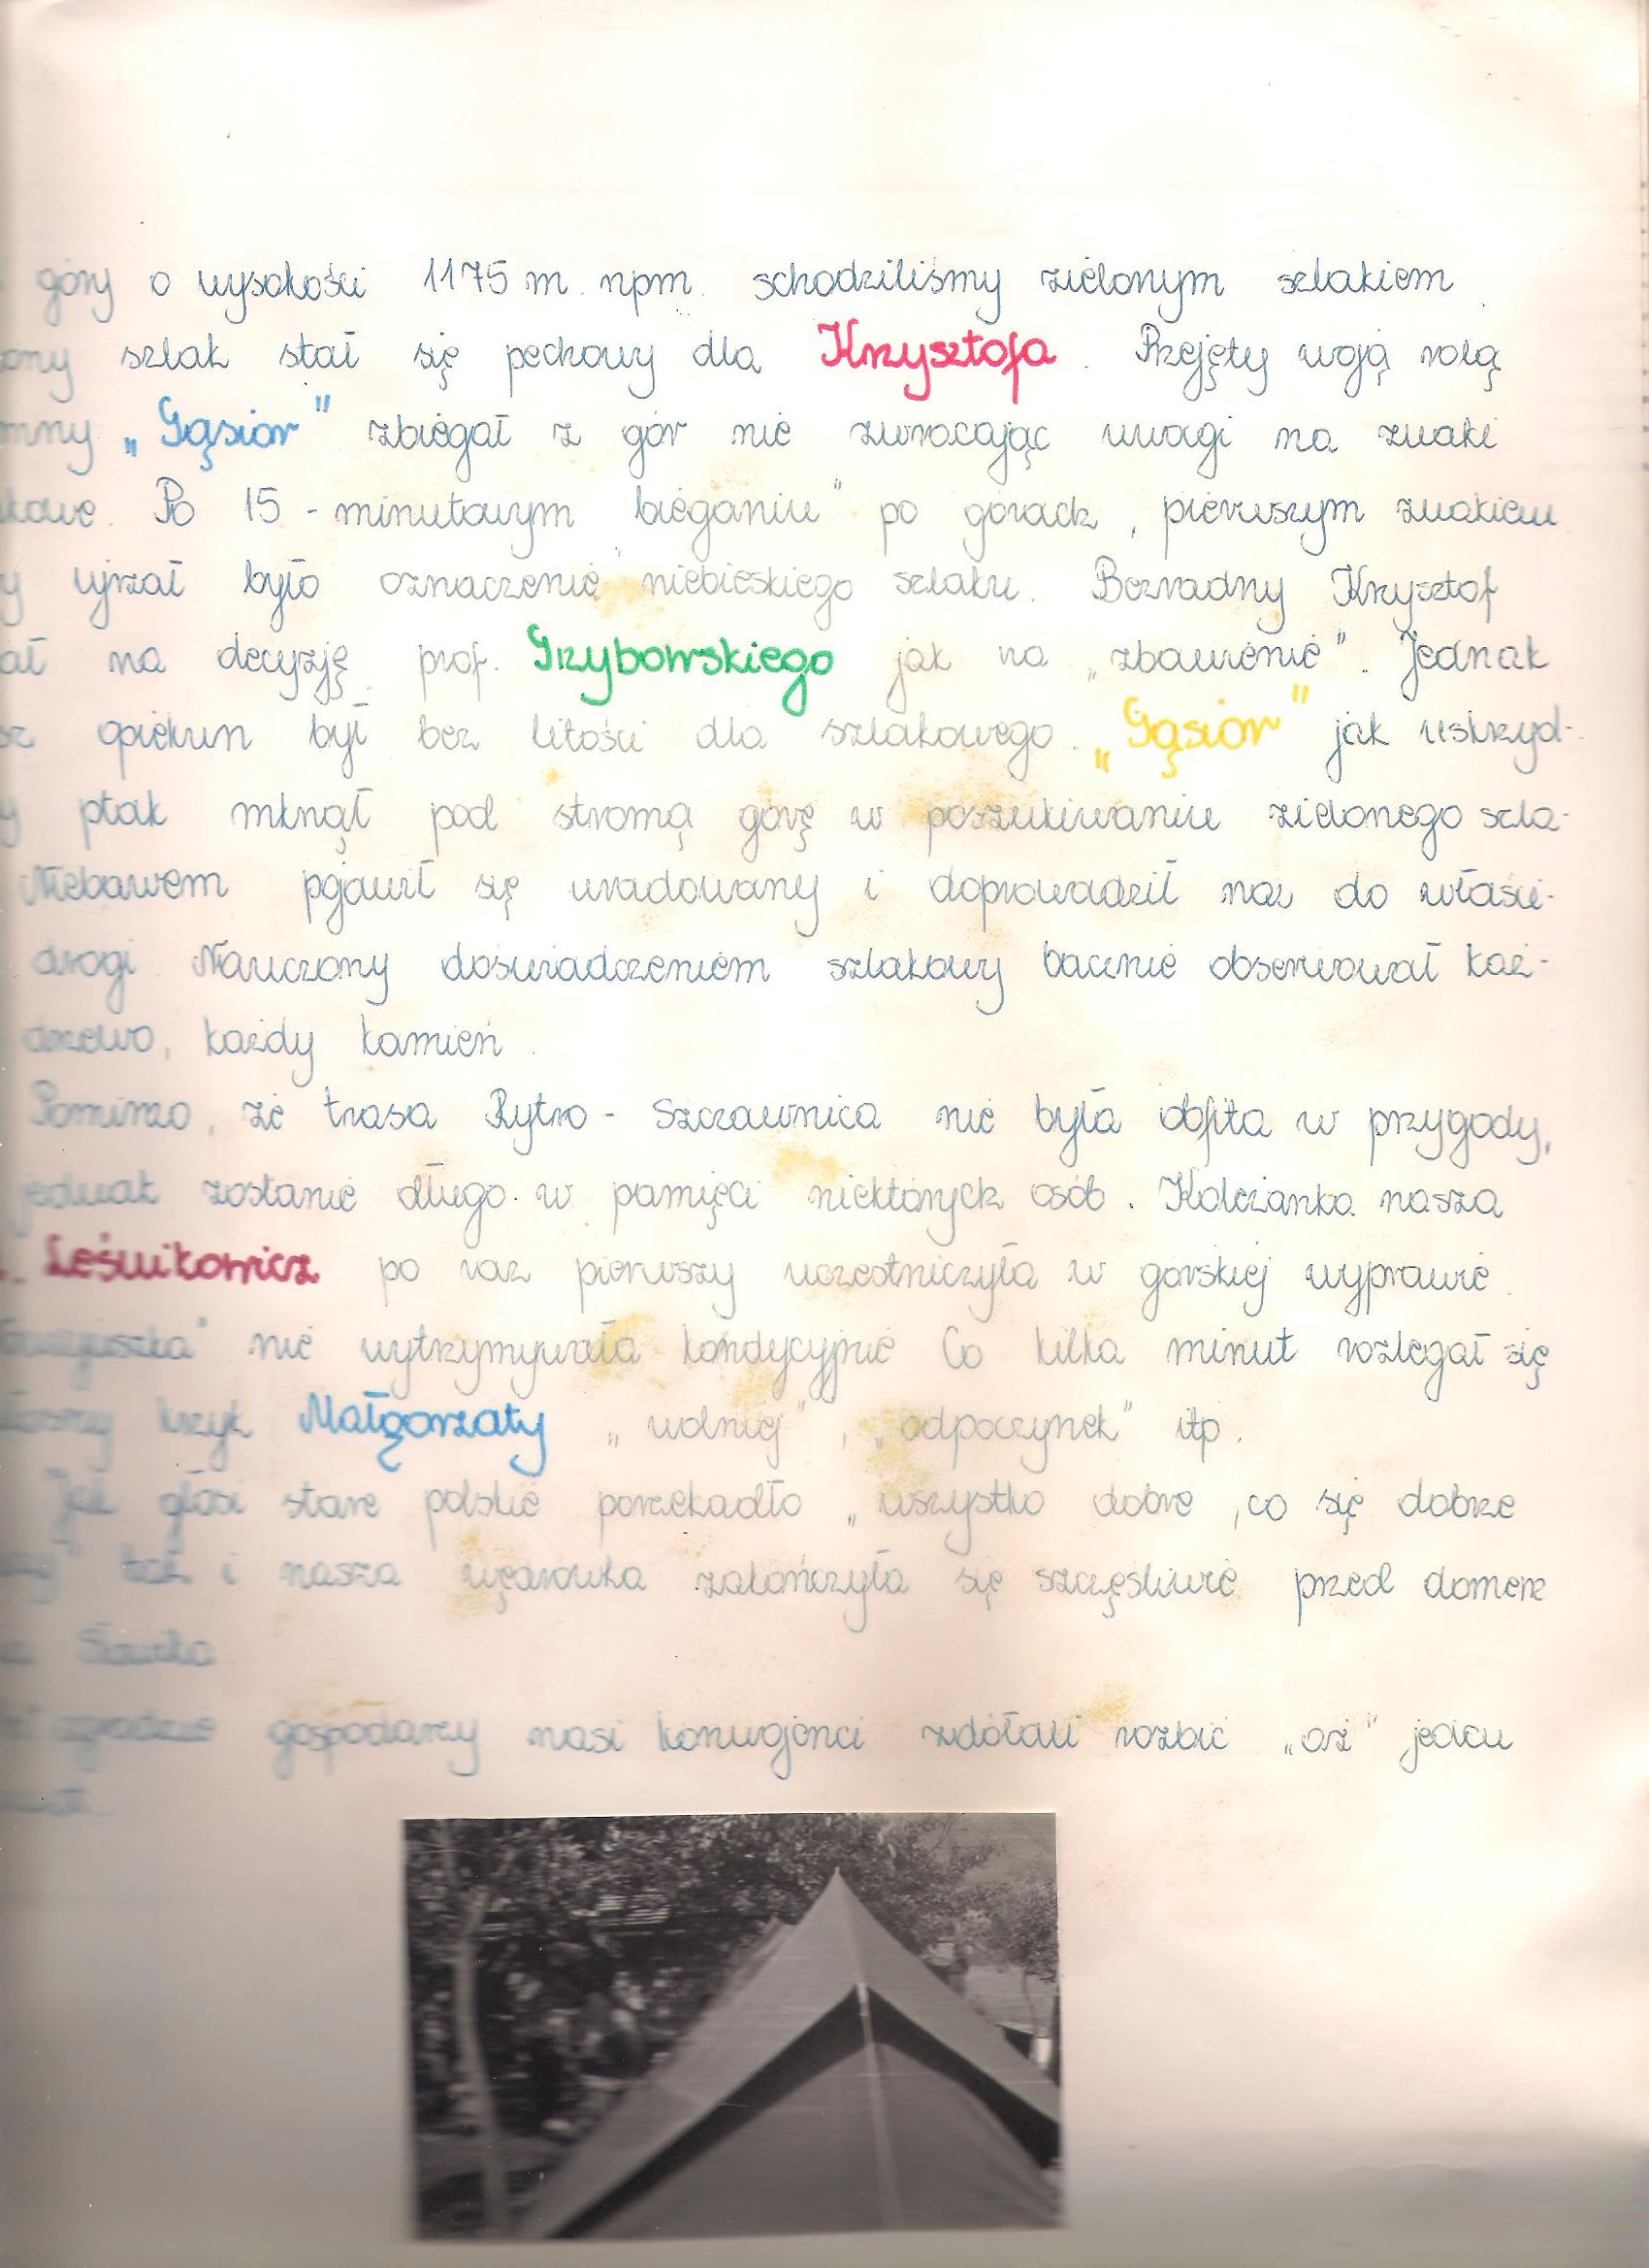 góry o wysokości 1175 m. npm. schodziliśmy zielonym szlakiem
ony szlak stał się pechowy dla Krzysztofa. Przejęty swoją rolą
mny „Gąsior" zbiegał z gór nie zwracając uwagi na znaki
kowe. Po 15-minutowym „bieganiu" po górach, pierwszym znakiem
y ujrzał było oznaczenie niebieskiego szlaku. Bezradny Krzysztof
ał na decyzję prof. Grzybowskiego jak na „zbawienie". Jednak
sz opiekun był bez litości dla szlakowego. „Gąsior" jak uskrzyd-
y ptak mknął pod stromą górę w poszukiwaniu zielonego szla-
Niebawem pojawił się uradowany i doprowadził nas do właści-
drogi. Nauczony doświadczeniem szlakowy bacznie obserwował każ-
drzewo, każdy kamień.
Pomimo, że trasa Rytro - Szczawnica nie była obfita w przygody,
jednak zostanie długo w pamięci niektórych osób. Koleżanka nasza
Leśnikowicz po raz pierwszy uczestniczyła w górskiej wyprawie.
nie wytrzymywała kondycyjnie Co kilka minut rozlegał się
krzyk Małgorzaty „wolniej", „odpoczynek" itp.
Jak głosi stare polskie porzekadło „wszystko dobre, co się dobrze
tak i nasza wędrówka zakończyła się szczęśliwie przed domem
gospodarzy nasi konwojenci zdołali rozbić „aż" jeden